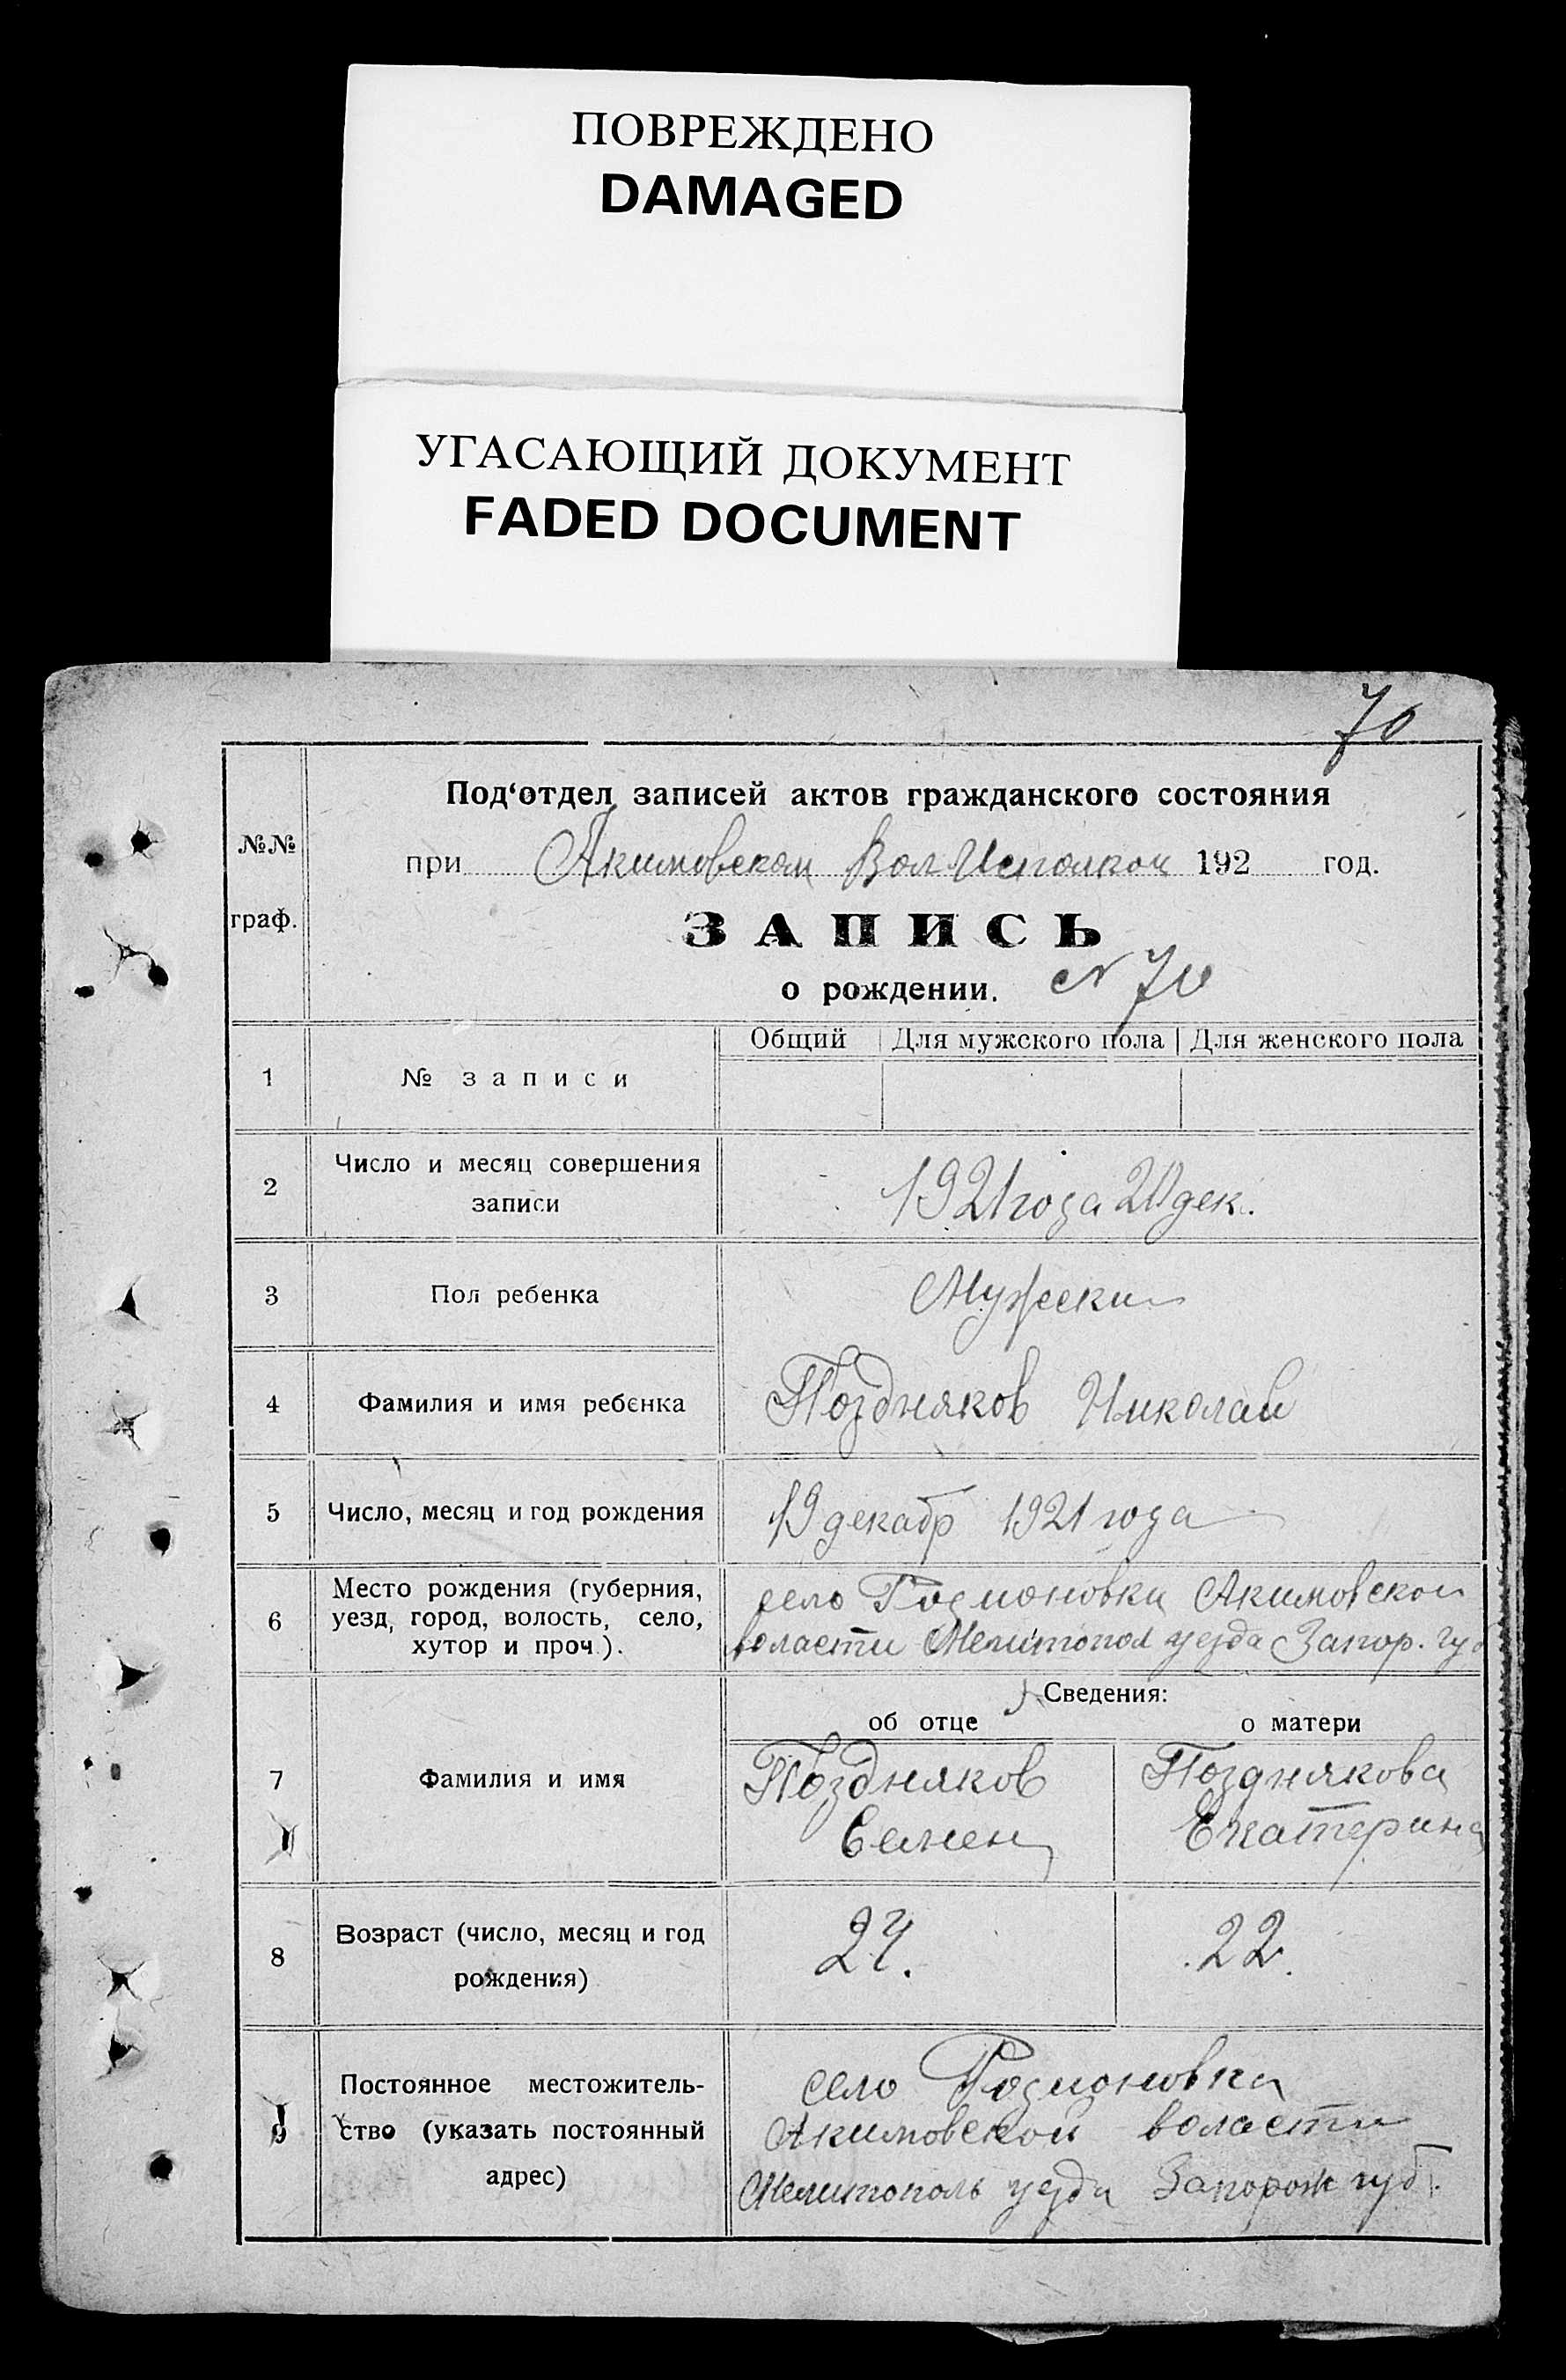 ПОВРЕЖДЕНО
DAMAGED
УГАСАЮЩИЙ ДОКУМЕНТ
FADED DOCUMENT
70
№№ граф.
Под‘отдел записей актов гражданского состояния
при Акимовском ВолИсполком 192 год.
ЗАПИСЬ
о рождении. N 70
Общий Для мужского пола Для женского пола
1 № записи
2 Число и месяц совершения
записи
1921 года 20 дек.
3 Пол ребенка Мужски
4 Фамилия и имя ребенка Поздняков Николай
5 Число, месяц и год рождения 19 декабр 1921 года
6 Место рождения (губерния,
уезд, город, волость, село,
хутор и проч.).
село Родионовка Акимовской
воласти Мелитопол уезда Запор. губ
Сведения:
об отце о матери
7 Фамилия и имя
Поздняков
Семен
Позднякова
Екатерина
8 Возраст (число, месяц и год
рождения)
24. 22.
9 Постоянное местожитель-
ство (указать постоянный
адрес)
село Родионовка
Акимовской воласти
Мелитополь уезда Запорож губ.